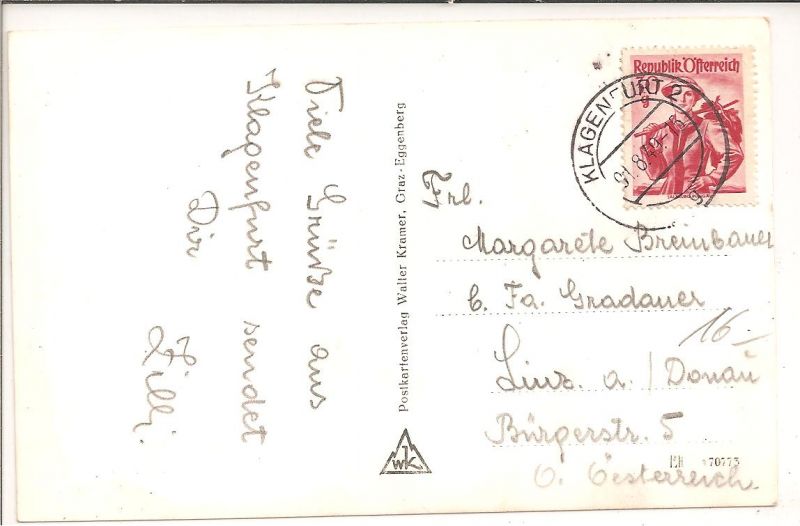 Viele Grüße aus
Klagenfurt sendet
Dir
Lilli.
Postkartenverlag Walter Kramer, Graz-Eggenberg
WK
Republik Österreich
KLAGENFURT 2
Frl.
Margarete Breinbauer
b. Fa. Gradauer
16-
Linz. a./Donau
Bürgerstr. 5
70773
O. Oesterreich.